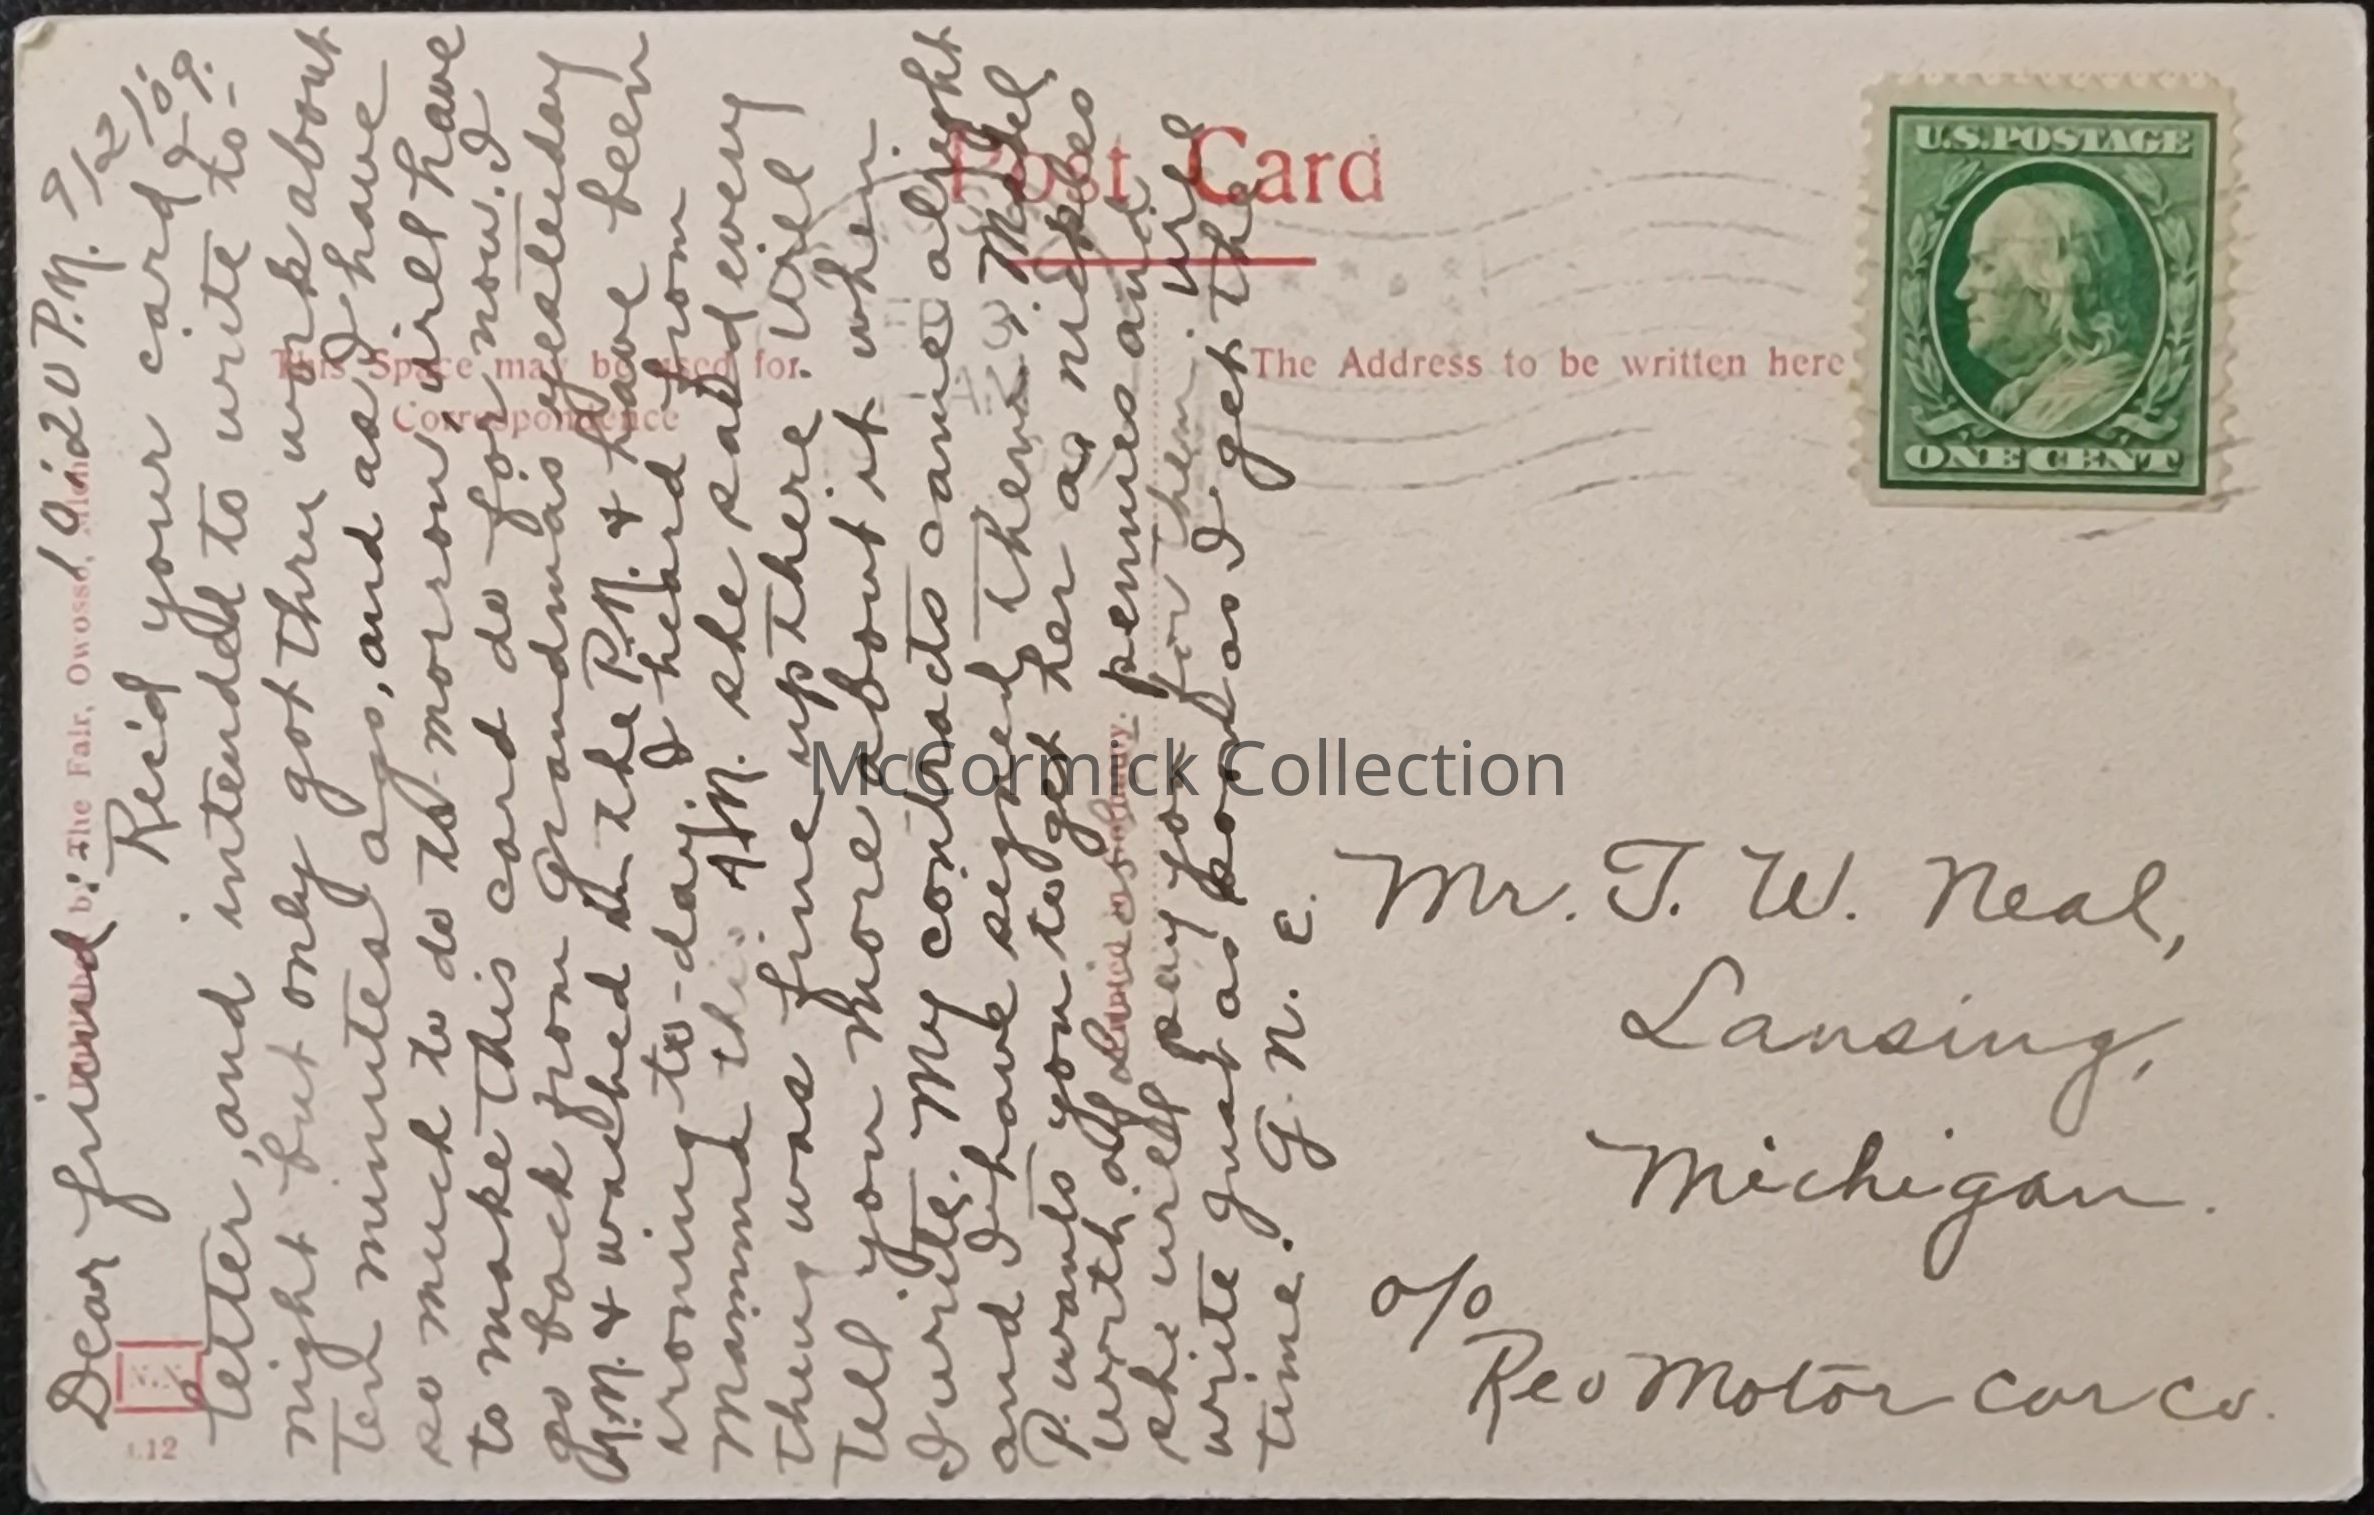 Post Card
This Space may be used for
Correspondence
The Address to be written here
U.S. POSTAGE
ONE CENT
The Fair, Owosso, Mich
112
Dear friend: 9:20 P.M. 9/2/'09.
Rec'd your card &
letter, and intended to write to-
night but only got thru work about
ten minutes ago, and as I have
so much to do to-morrow, will have
to make this card do for now. I
go back from grandmas yesterday
A.M. & washed in the P.M. & have been
ironing to-day. I heard from
Mamma this A.M. she said every
thing was fine up there. Will
tell you more about it when
I write. My contracts came alright
and I have signed them. Mabel
P. wants you to get her as nickles
worth of Lansing pennies and
she will pay you for them. Will
write just as soon as I get the
time. G. N. E.
Mr. T. W. Neal,
Lansing,
Michigan.
c/o
Reo Motor Car Co.
McCormick Collection